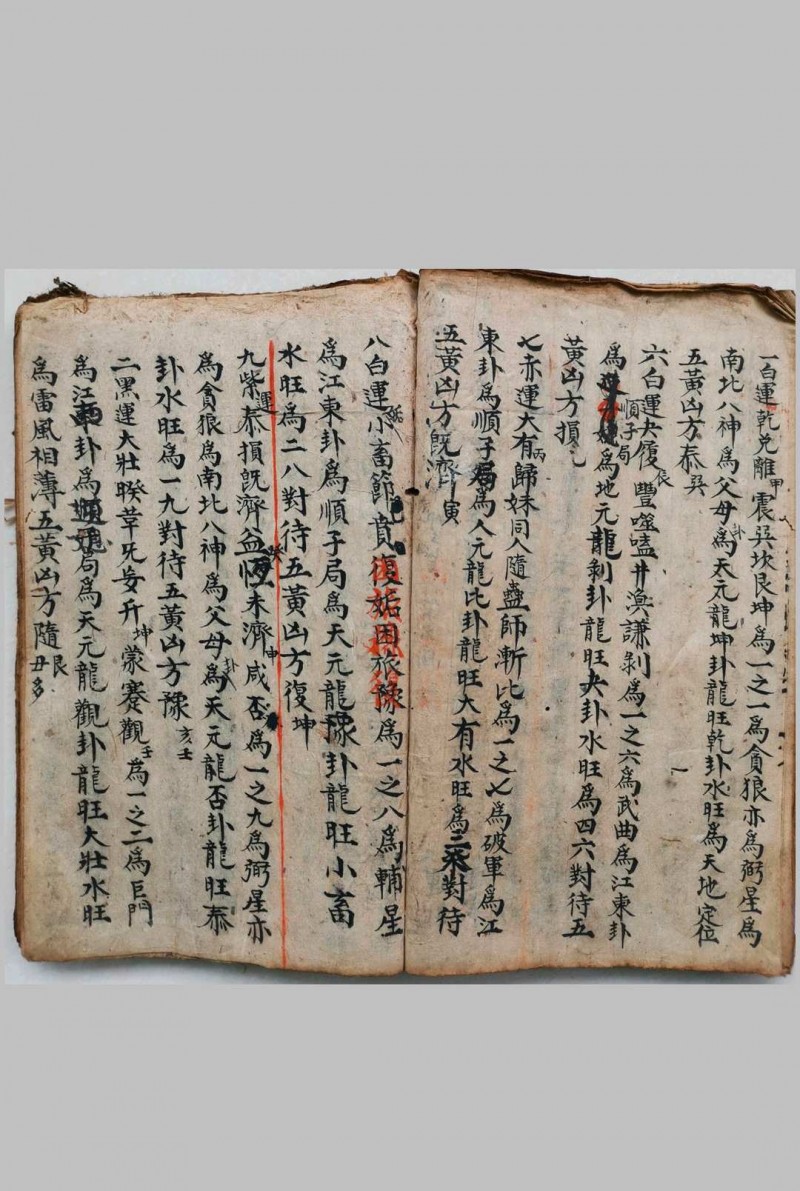 一白運乾兌離甲震巽坎艮坤為一之一為貪狼亦為弼星為
南北八神為父母卦為天元龍坤卦龍旺乾卦水旺為天地定位
五黃凶方泰巽
六白運夬履辰豐噬嗑井渙謙剝為一之六為武曲為江東卦
為順子局為地元龍剝卦龍旺夬卦水旺為四六對待五
黃凶方損
七赤運大有丙歸妹同人隨蠱師漸比為一之七為破軍為江
東卦為順子局為人元龍比卦龍旺大有水旺為三柒對待
五黃凶方既濟寅
八白運小畜節賁復姤困旅豫為一之八為輔星
為江東卦為順子局為天元龍豫卦龍旺小畜
水旺為二八對待五黃凶方復坤
九紫運泰損既濟益恆未濟申咸否為一之九為弼星亦
為貪狼為南北八神為父母卦為天元龍否卦龍旺泰
卦水旺為一九對待五黃凶方豫亥壬
二黑運大壯睽革旡妄升坤蒙蹇觀壬為一之二為巨門
為江卦為局為天元龍觀卦龍旺大壯水旺
為雷風相薄五黃凶方隨艮丑多